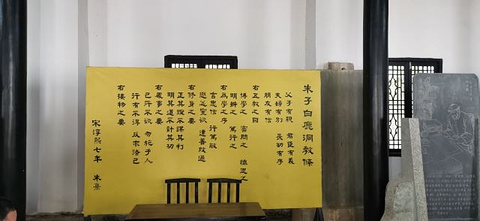 朱子白鹿洞教條
父子有親 君臣有義
夫婦有別 長幼有序
朋友有信
右五教之目
博學之 審問之 謹思之
明辨之 篤行之
右為學之序
言忠信 行篤敬
懲忿窒慾 遷善改過
右修身之要
正其誼不謀其利
明其道不計其功
右處事之要
己所不欲 勿施于人
行有不得 反求諸己
右接物之要
宋淳熙七年 朱熹